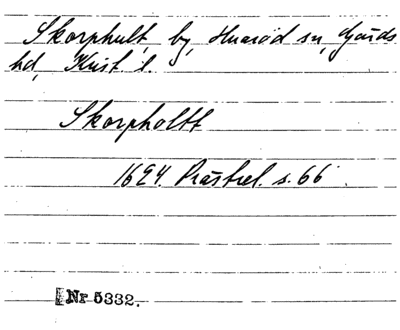 Skorphult, by, Huaröd sn, Gärds
hd, Krist. l.
Skorpholtt
1624. Prästrel. s. 66.
Nr 5332.